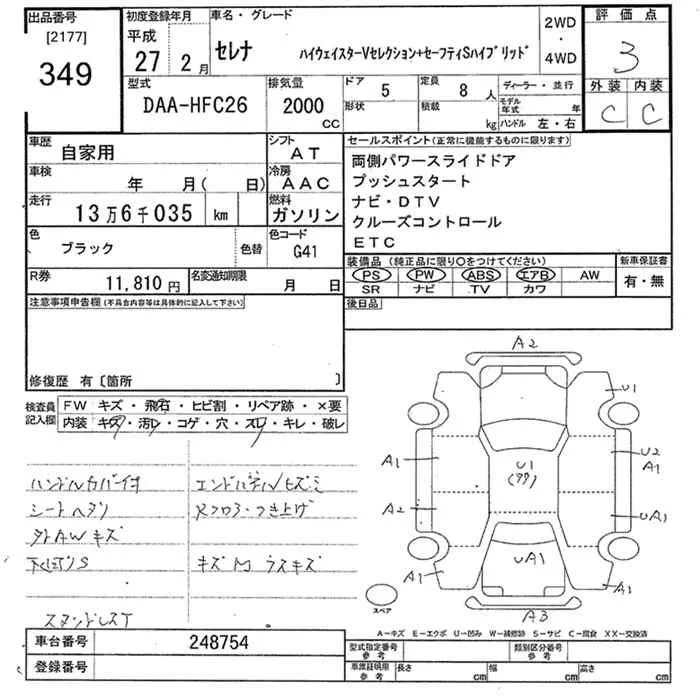 出品番号
[2177]
349
初度登録年月
平成
27 2月
車名・グレード
セレナ ハイウェイスターVセレクション+セーフティSハイブリッド
2WD
・
4WD
評価点
3
外装 内装
C C
型式
DAA-HFC26
排気量
2000
CC
ドア 5
形状
定員 8 人
積載 kg
ディーラー・並行
モデル年式 年
ハンドル 左・右
車歴 自家用
シフト AT
車検 年 月( 日)
冷房 AAC
走行 13万6千035 km
燃料 ガソリン
色 ブラック 色替
色コード G41
R券 11,810円
名変通知期限 月 日
セールスポイント(正常に機能するものに限ります)
両側パワースライドドア
プッシュスタート
ナビ・DTV
クルーズコントロール
ETC
装備品(純正品に限り○をつけてください)
PS PW ABS エアB AW
SR ナビ TV カワ
新車保証書
有・無
後日品
注意事項申告欄(不具合内容等は具体的に記入して下さい)
修復歴 有〔箇所 〕
検査員記入欄
FW キズ・飛石・ヒビ割・リペア跡・×要
内装 キズ・汚レ・コゲ・穴・スレ・キレ・破レ
ハンドルカバー付
シートヘタリ
外AWキズ
下廻りS
スタンドレスT
Rフロア・つき上げ
キズM ラスキズ
A2
U1
A1
U2
A1
U1
A2
UA1
UA1
A1
A1
A3
スペア
A-キズ E-エクボ U-凹み W-補修跡 S-サビ C-腐食 XX-交換済
車台番号 248754
登録番号
型式指定番号
参考
類別区分番号
参考
車庫証明用
参考
長さ cm 幅 cm 高さ cm